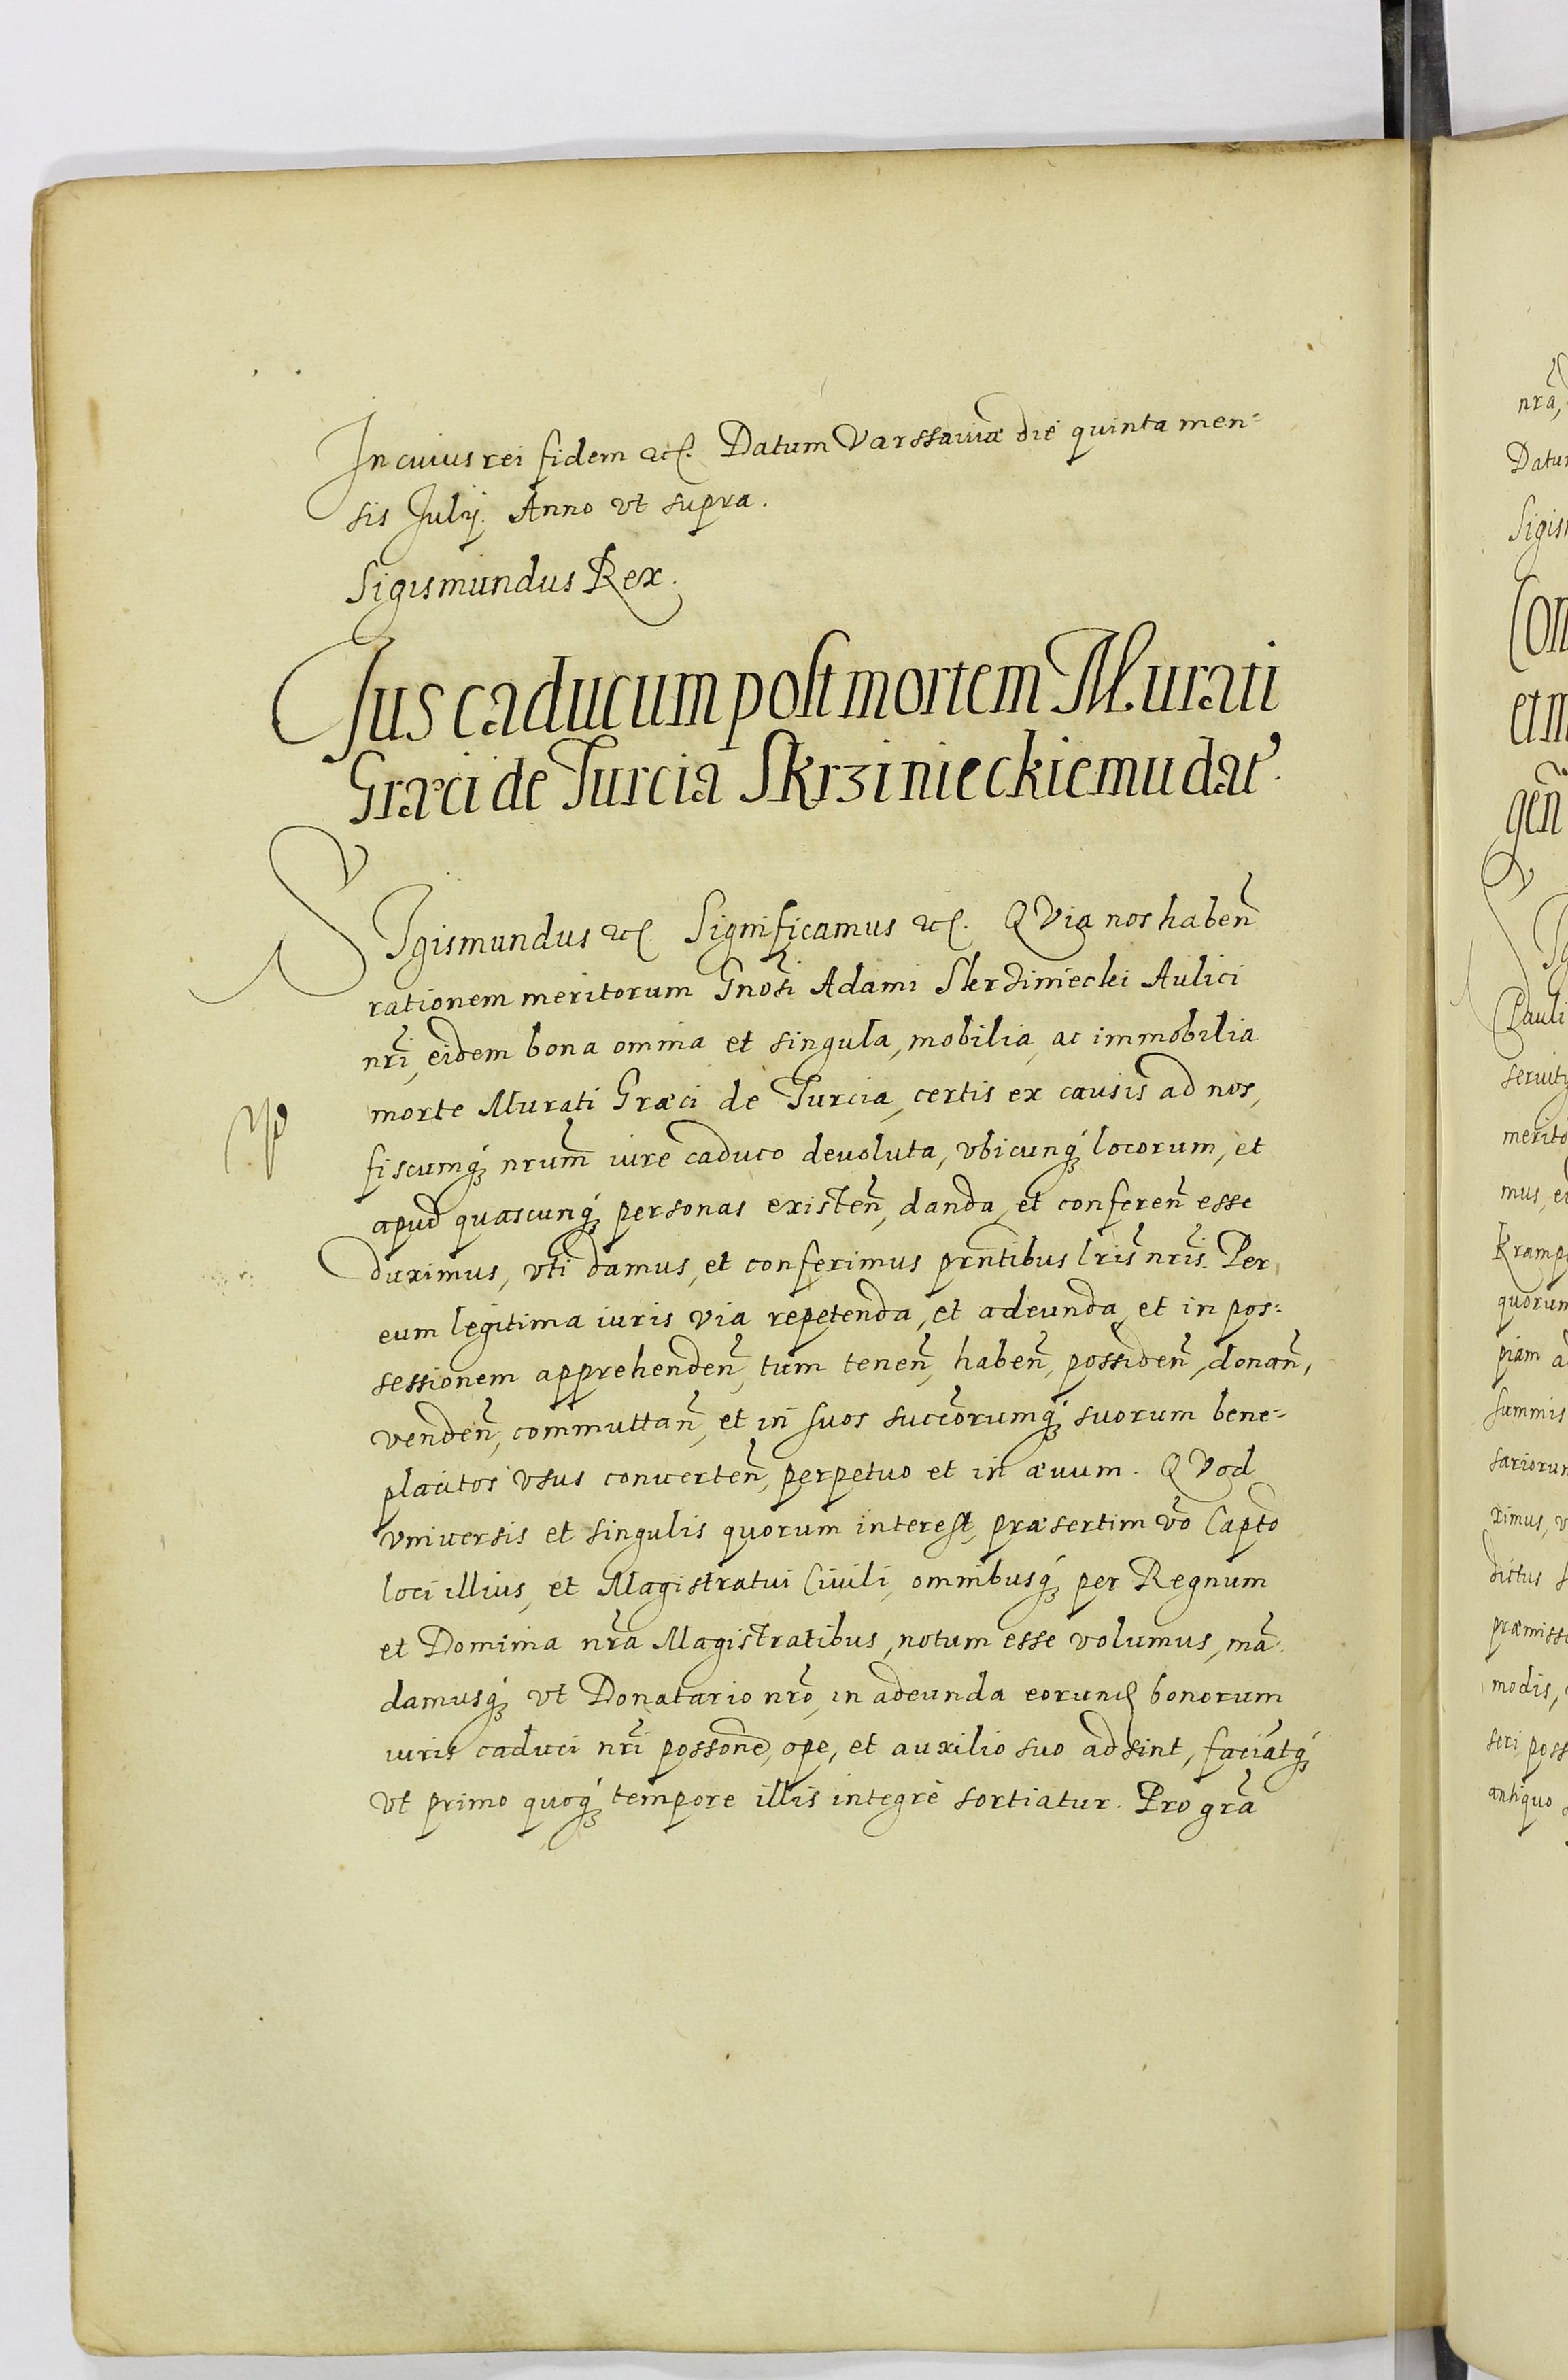 In cuius rei fidem etc. Datum Varssauiæ die quinta men=
sis Julij. Anno vt supra.
Sigismundus Rex.
Jus caducum post mortem Murati
Græci de Turcia Skrzinieckiemu dat̃.
SIgismundus etc. Significamus etc. QVia nos habeñ
rationem meritorum Gnõsi Adami Skrziniecki Aulici
nr̃i, eidem bona omnia et singula, mobilia, ac immobilia
morte Murati Græci de Turcia, certis ex causis ad nos,
fiscumq́ꝫ nrum̃ iure caduco deuoluta, vbicunq́ꝫ locorum, et
apud quascunq́ꝫ personas existeñ, danda, et confereñ esse
duximus, vti damus, et conferimus prñtibus lr̃is nr̃is. Per
eum legitima iuris via repetenda, et adeunda, et in pos=
sessionem apprehendeñ, tum teneñ, habeñ, possideñ, donañ,
vendeñ, commuttañ, et in suos succõrumq́ꝫ suorum bene=
placitos vsus conuerteñ, perpetuo et in æuum. QVod
vniuersis et singulis quorum interest, præsertim võ Capto
loci illius, et Magistratui Ciuili, omnibusq́ꝫ per Regnum
et Dominia nr̃a Magistratibus, notum esse volumus, mã=
damusq́ꝫ vt Donatario nrõ, in adeunda eorund bonorum
iuris caduci nr̃i possone, ope, et auxilio suo adsint, faciãtq́ꝫ
vt primo quoq́ꝫ tempore illis integrè sortiatur. Pro grã
nrã,
Datum
Pauli
seruit
merito
mus, e
quorum
piam a
summis
sariorum
ximus, v
dictus
præmiss
modis,
seri, poss
antiquo